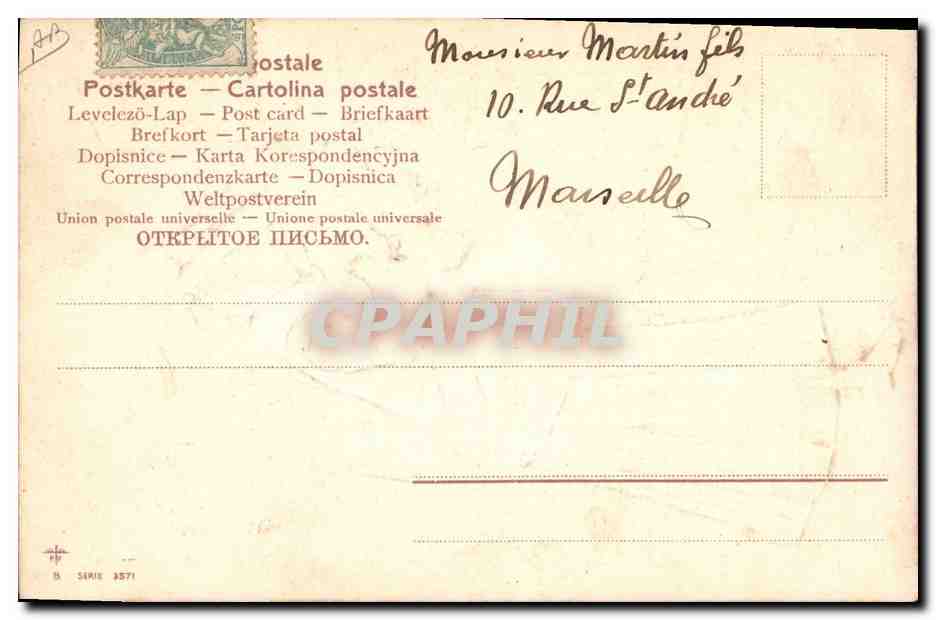 AB
ostale
Postkarte — Cartolina postale
Levelező-Lap — Post card — Briefkaart
Brefkort — Tarjeta postal
Dopisnice — Karta Korespondencyjna
Correspondenzkarte — Dopisnica
Weltpostverein
Union postale universelle — Unione postale universale
ОТКРЫТОЕ ПИСЬМО.
Monsieur Martin fils
10. Rue St André
Marseille
CPAPHIL
B SERIE 3571